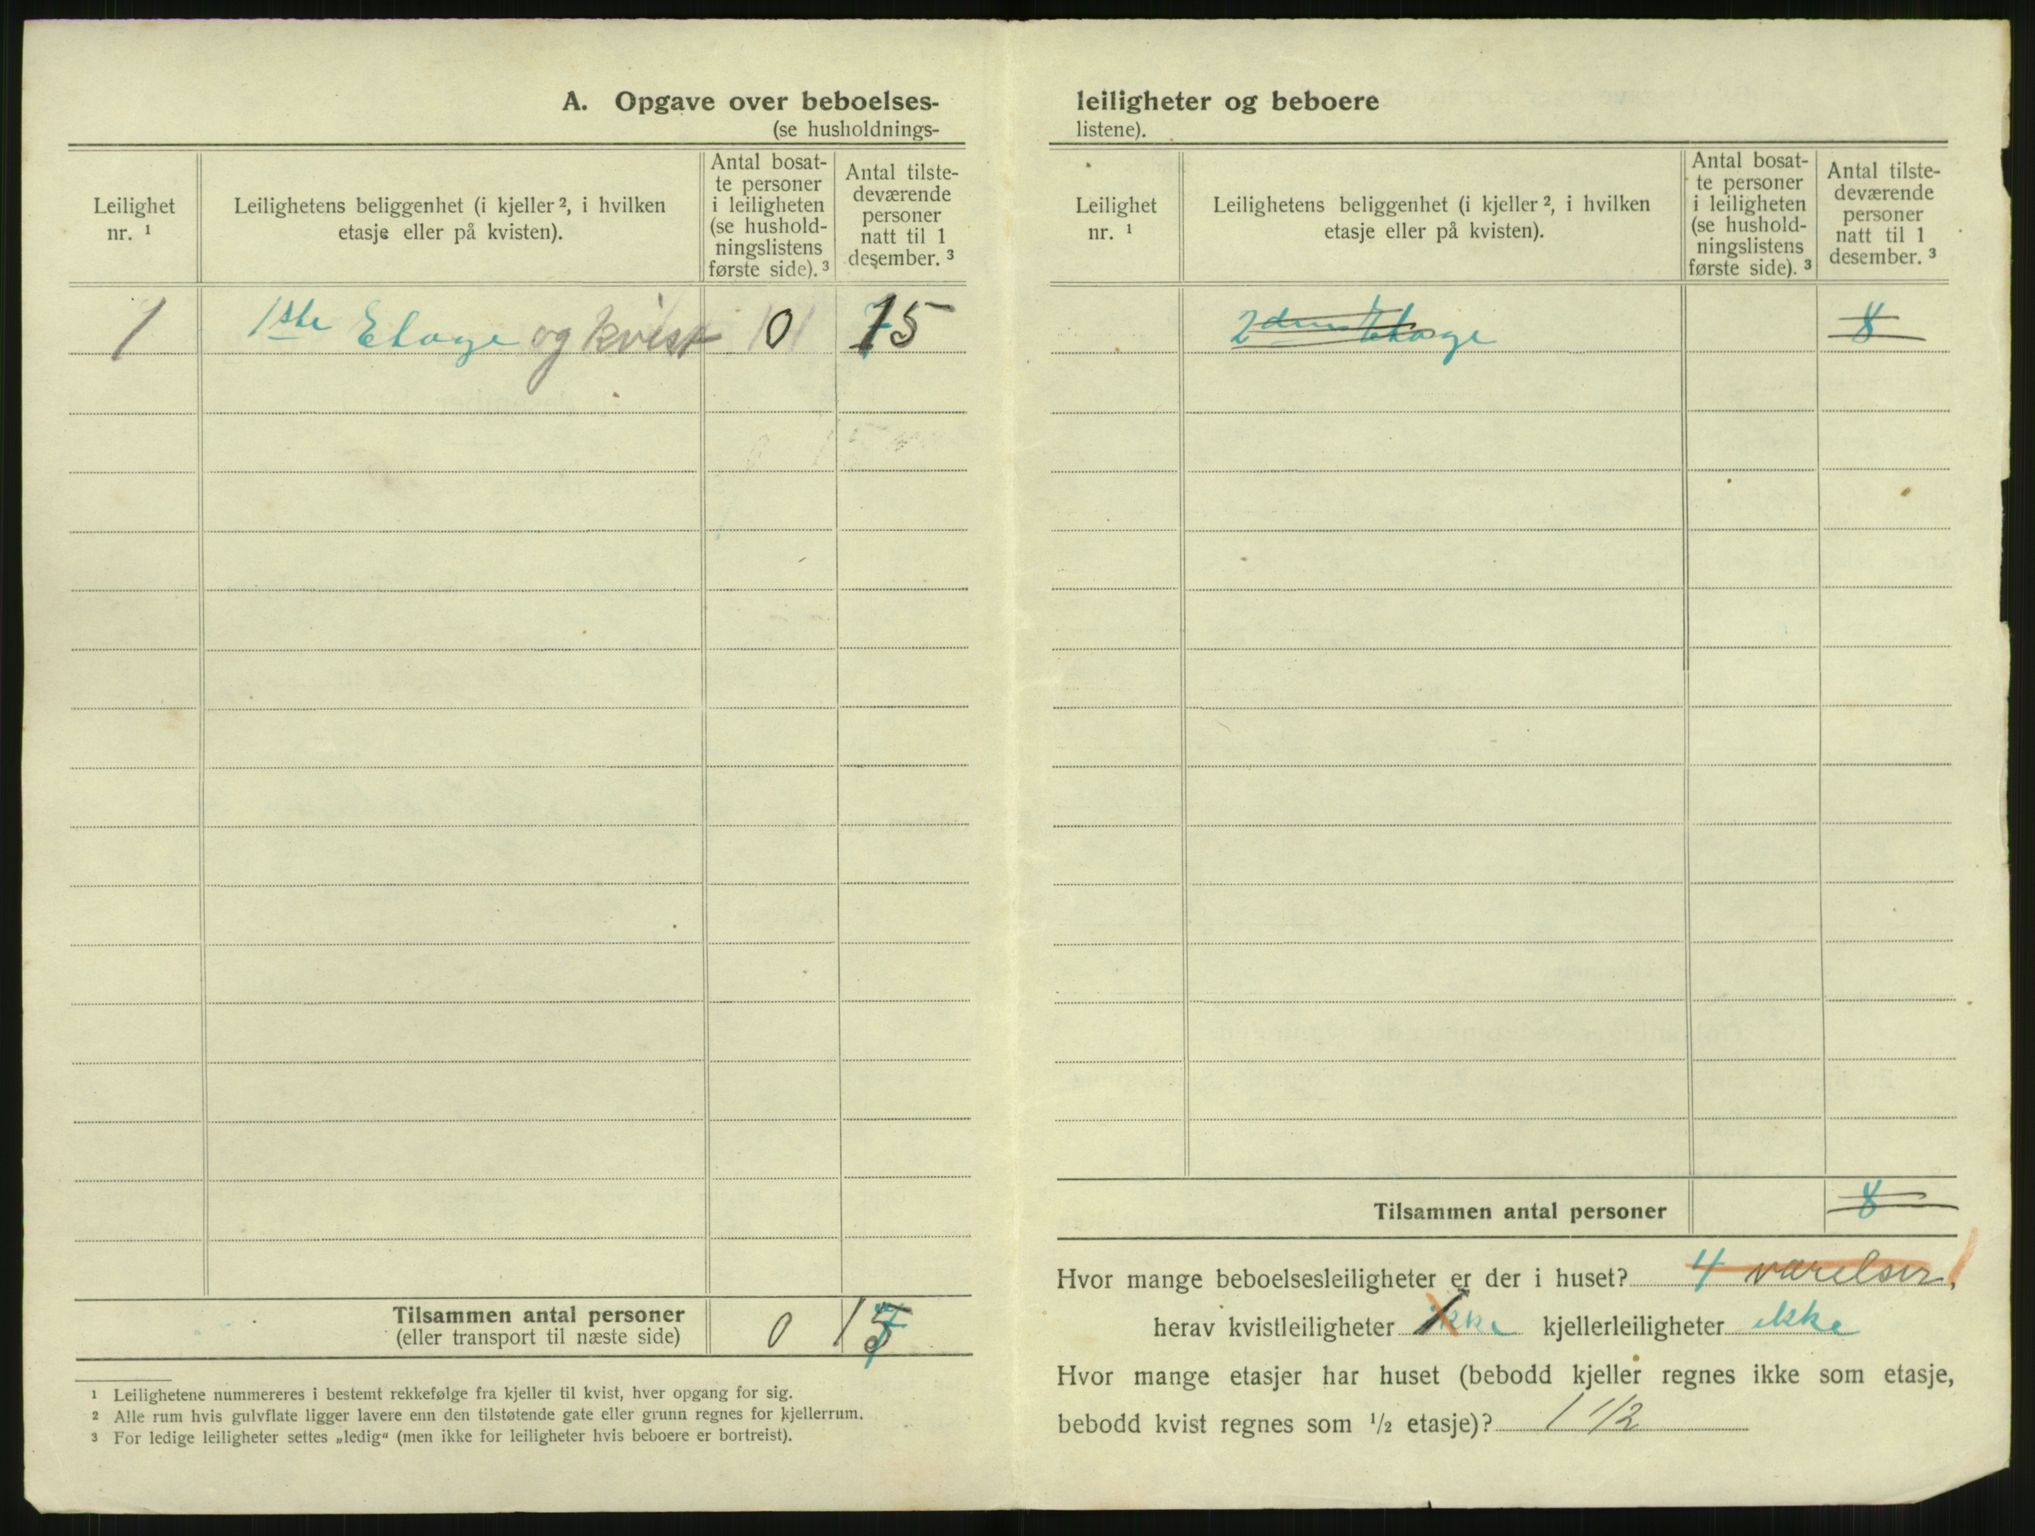 A. Opgave over beboelses-
(se husholdnings-
Leilighet nr. ¹
Leilighetens beliggenhet (i kjeller ², i hvilken
etasje eller på kvisten).
Antal bosat-
te personer
i leiligheten
(se hushold-
ningslistens
første side). ³
Antal tilste-
deværende
personer
natt til 1
desember. ³
1 1ste Etage og kvist 0 15
Tilsammen antal personer 0 15
(eller transport til næste side)
¹ Leilighetene nummereres i bestemt rekkefølge fra kjeller til kvist, hver opgang for sig.
² Alle rum hvis gulvflate ligger lavere enn den tilstøtende gate eller grunn regnes for kjellerrum.
³ For ledige leiligheter settes „ledig“ (men ikke for leiligheter hvis beboere er bortreist).
leiligheter og beboere
listene).
Leilighet nr. ¹
Leilighetens beliggenhet (i kjeller ², i hvilken
etasje eller på kvisten).
Antal bosat-
te personer
i leiligheten
(se hushold-
ningslistens
første side). ³
Antal tilste-
deværende
personer
natt til 1
desember. ³
2den Etage 8
Tilsammen antal personer 8
Hvor mange beboelsesleiligheter er der i huset? 4 værelser, 1
herav kvistleiligheter ikke kjellerleiligheter ikke
Hvor mange etasjer har huset (bebodd kjeller regnes ikke som etasje,
bebodd kvist regnes som ½ etasje)? 1 1/2